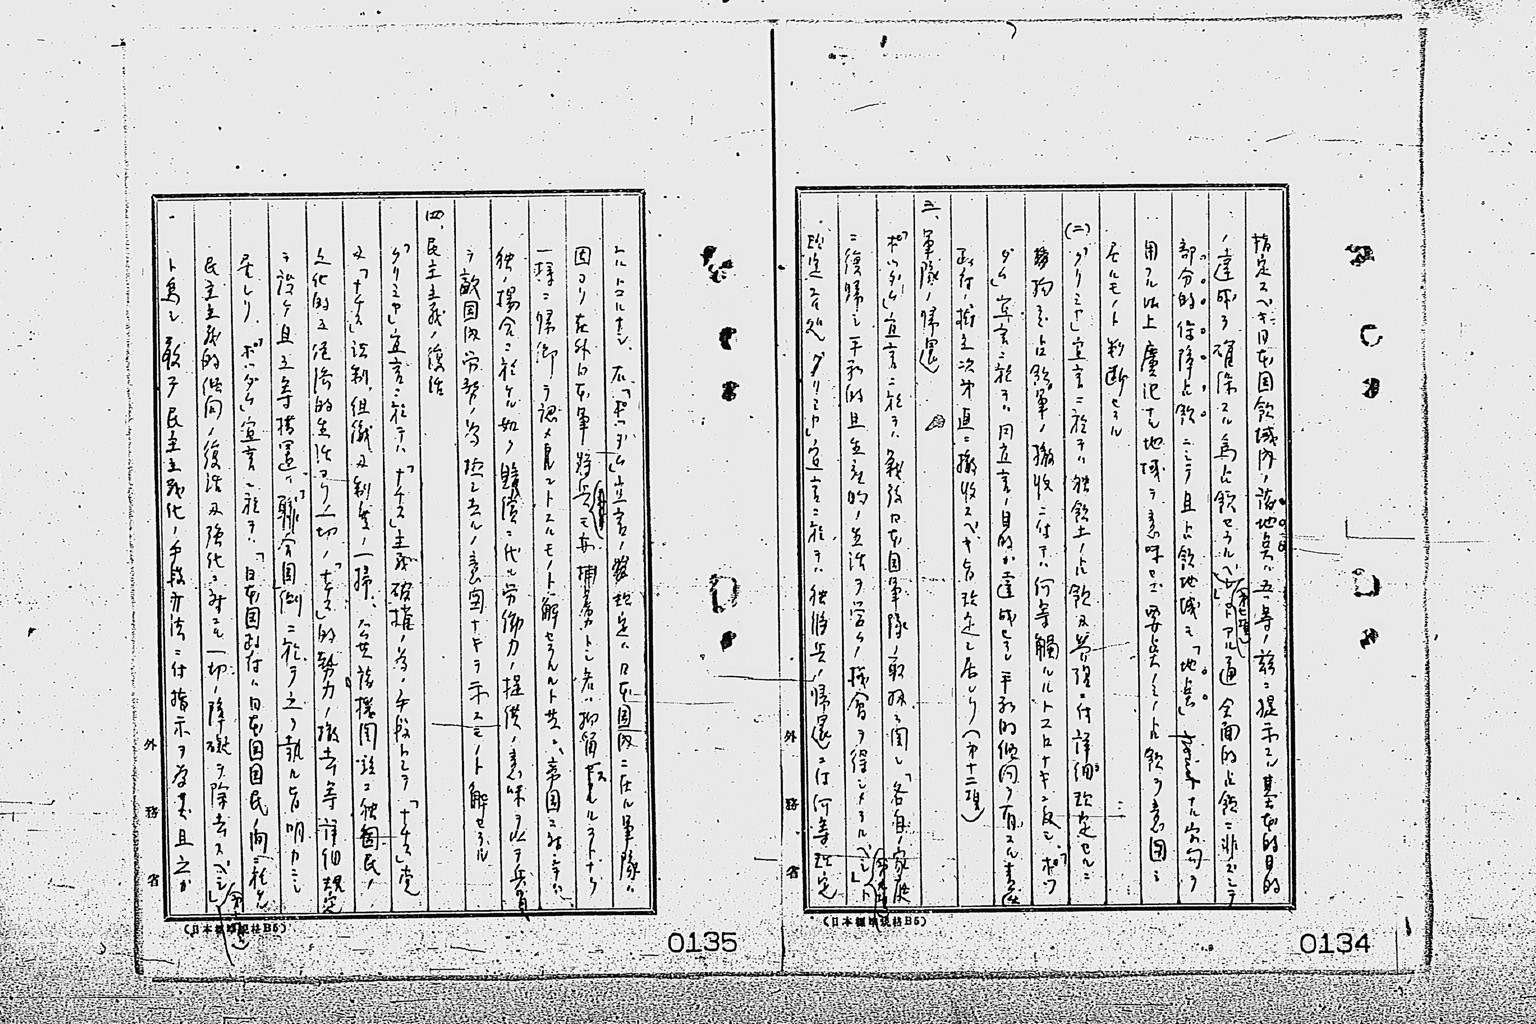 指定スベキ日本国領域内ノ諸地点ハ、吾等ノ茲ニ提示スル基本的目的
ノ達成ヲ確保スル為占領セラルベシ」(第七項)トアル通全面的占領ニ非ズシテ
部分的保障占領ニシテ且占領地域モ「地点」ナル字句ヲ
用フル以上広汎ナル地域ヲ意味セズ要点ノミノ占領ヲ意図シ
居ルモノト判断セラル
(二)「クリミヤ」宣言ニ於テハ独領土ノ占領及管理ニ付詳細規定セルニ
拘ラズ占領軍ノ撤收ニ付テハ何等觸ルルトコロナキニ反シ「ポツ
ダム」宣言ニ於テハ同宣言ノ目的ガ達成セラレ平和的傾向ヲ有スル責任
政府ノ樹立次第直ニ撤收スベキ旨規定シ居レリ(第十二項)
三、軍隊ノ帰還
「ポツダム」宣言ニ於テハ戦後日本国軍隊ノ取扱ニ関シ「各自ノ家庭
ニ復帰シ平和的且生産的ノ生活ヲ営ムノ機会ヲ得シメラルベシ」(第九項)ト
規定セル処「クリミヤ」宣言ニ於テハ独将兵ノ帰還ニ付何等規定
外務省
(日本標準規格B5)
0134
スルトコロナシ、右「ポツダム」宣言ノ規定ハ日本国内ニ在ル軍隊ハ
固ヨリ在外日本軍将兵モ再捕虜トシ若ハ抑留セラルルコトナク
一様ニ帰郷ヲ認メ居ラントスルモノト解セラルルト共ニ、帝国ニ対シテハ
独ノ場合ニ於ケル如ク賠償ニ代ル労働力ノ提供ノ意味ヲ以テ兵員
ヲ敵国内労務ノ為拉シ去ルノ意図ナキヲ示スモノト解セラル
四、民主主義ノ復活
「クリミヤ」宣言ニ於テハ「ナチス」主義破摧ノ為ノ手段トシテ「ナチス」党
及「ナチス」法制、組織及制度ノ一掃、公共諸機関並ニ独国民ノ
文化的及経済的生活ヨリ一切ノ「ナチス」的勢力ノ撤去等詳細規定
ヲ設ケ且此等措置ハ聯合国側ニ於テ之ヲ執ル旨明カニシ
居レリ、「ポツダム」宣言ニ於テハ「日本国政府ハ日本国国民ノ間ニ於ケル
民主主義的傾向ノ復活及強化ニ対スル一切ノ障礙ヲ除去スベシ」(第十項)
ト為シ敢テ民主主義化ノ手段方法ニ付指示ヲ為サズ且之ガ
外務省
(日本標準規格B5)
0135